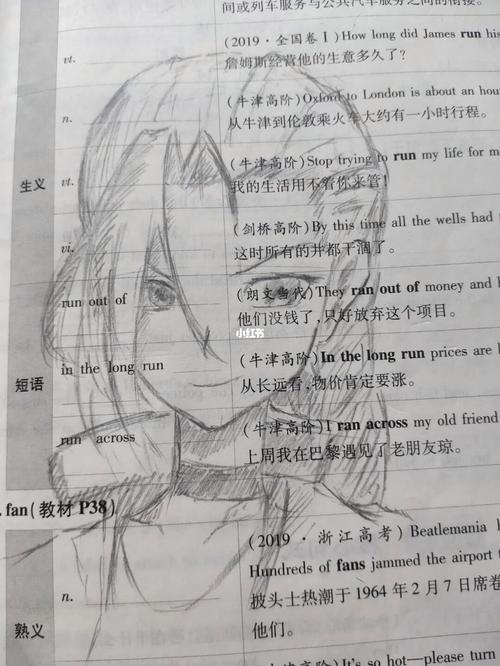 间或列车服务与公共汽车服务之间的衔接。
vt.
(2019·全国卷Ⅰ)How long did James run his
詹姆斯经营他的生意多久了?
n.
(牛津高阶)Oxford to London is about an hou
从牛津到伦敦乘火车大约有一小时行程。
生义
vt.
(牛津高阶)Stop trying to run my life for m
我的生活用不着你来管!
vi.
(剑桥高阶)By this time all the wells had
这时所有的井都干涸了。
run out of
(朗文当代)They ran out of money and h
他们没钱了,只好放弃这个项目。
小红书
短语
in the long run
(牛津高阶)In the long run prices are
从长远看,物价肯定要涨。
run across
(牛津高阶)I ran across my old friend
上周我在巴黎遇见了老朋友琼。
. fan(教材 P38)
熟义
n.
(2019·浙江高考)Beatlemania
Hundreds of fans jammed the airport
披头士热潮于 1964 年 2 月 7 日席卷
他们。
(牛津高阶)It's so hot—please turn